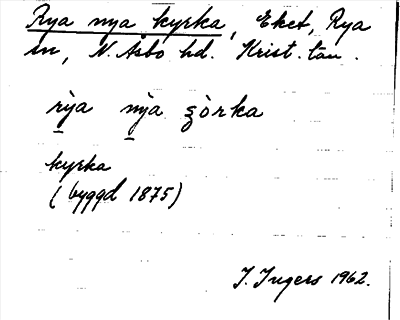 Rya nya kyrka, Eket, Rya
sn, N. Åsbo hd. Krist. län.
rỳa nỳa ʒòrka
kyrka
(byggd 1875)
I. Ingers 1962.